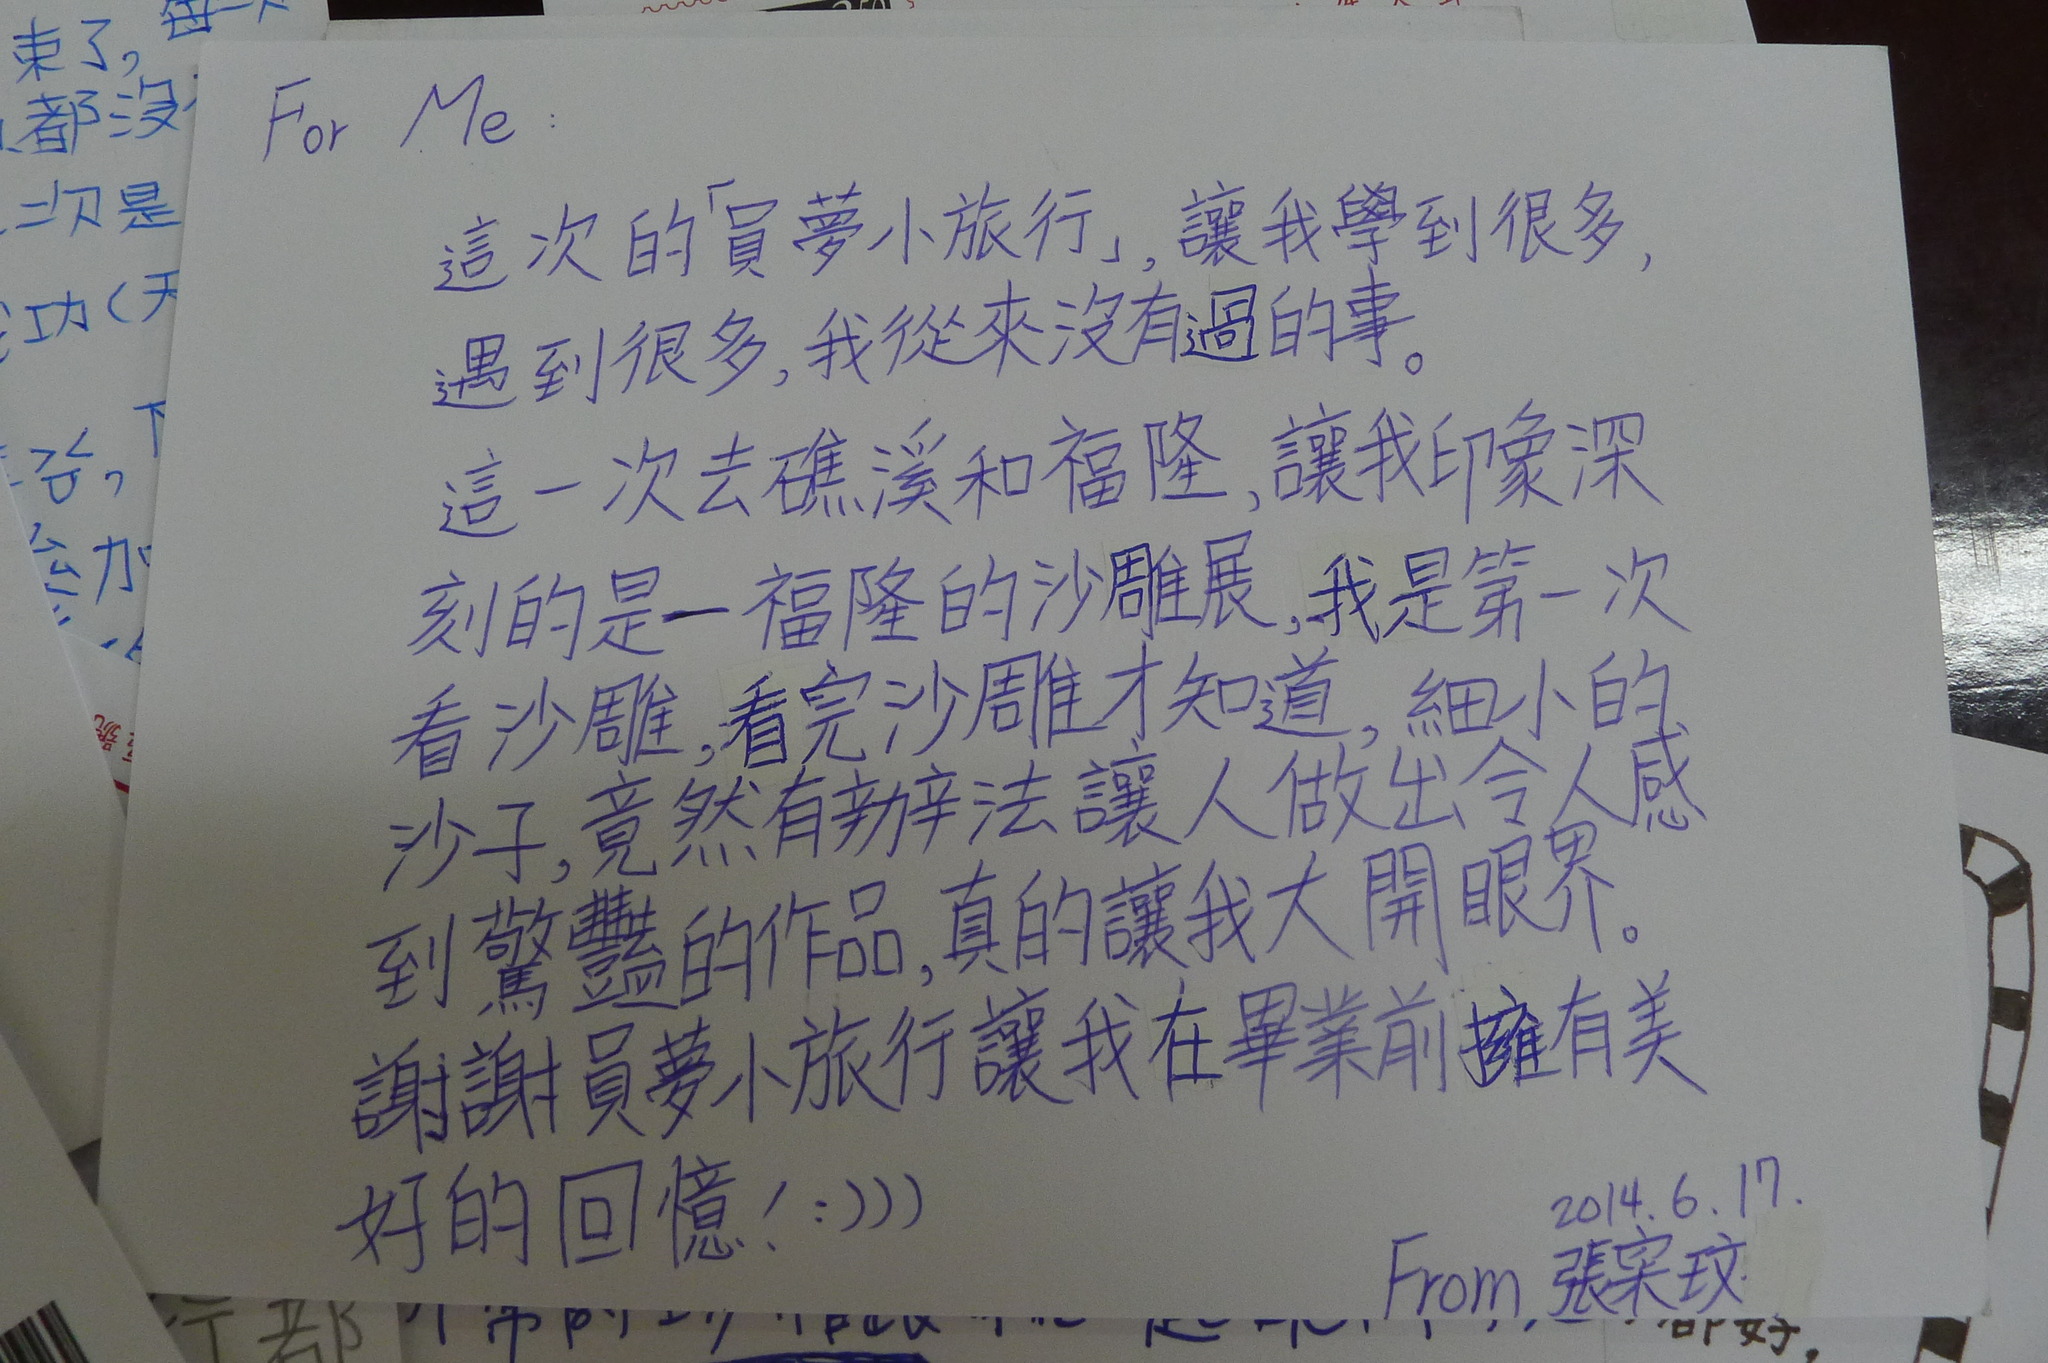 For Me:
這次的「員夢小旅行」,讓我學到很多,
遇到很多,我從來沒有過的事。
這一次去礁溪和福隆,讓我印象深
刻的是一福隆的沙雕展,我是第一次
看沙雕,看完沙雕才知道,細小的
沙子,竟然有辦法讓人做出令人感
到驚豔的作品,真的讓我大開眼界。
謝謝員夢小旅行讓我在畢業前擁有美
好的回憶!:)))
2014.6.17.
From 張宋玟
束了,每一
都沒
次是
功(天
加
行都
都好,